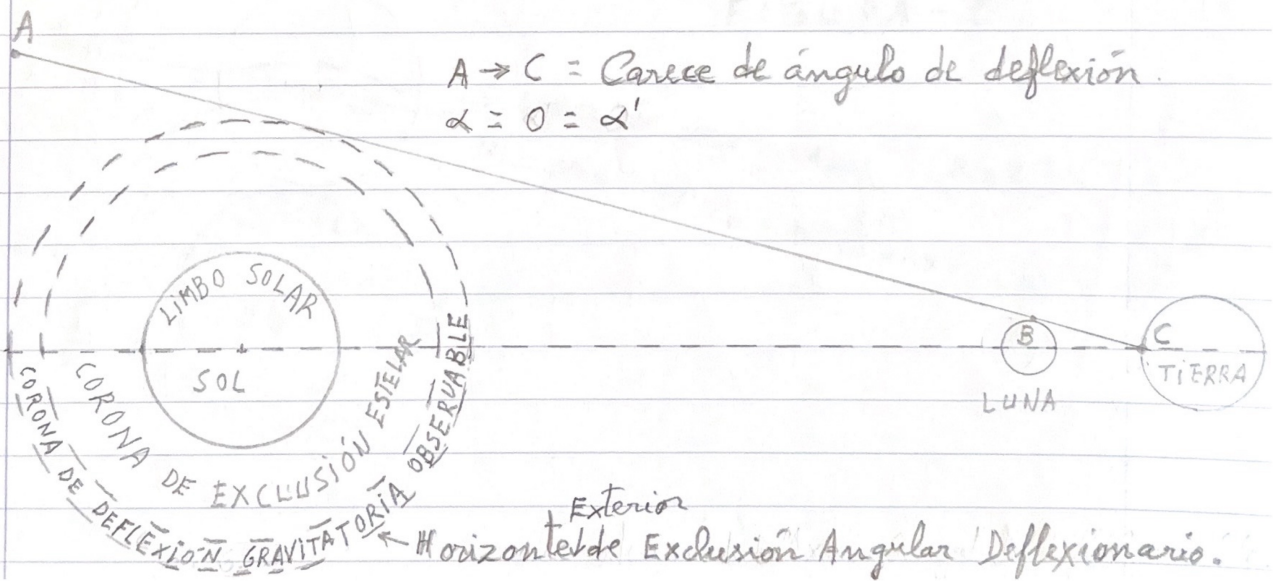 A
A → C = Carece de ángulo de deflexión.
α = 0 = α'
LIMBO SOLAR
SOL
CORONA DE EXCLUSIÓN ESTELAR
CORONA DE DEFLEXIÓN GRAVITATORIA OBSERVABLE
B
LUNA
C
TIERRA
Exterior
Horizonte de Exclusión Angular Deflexionario.